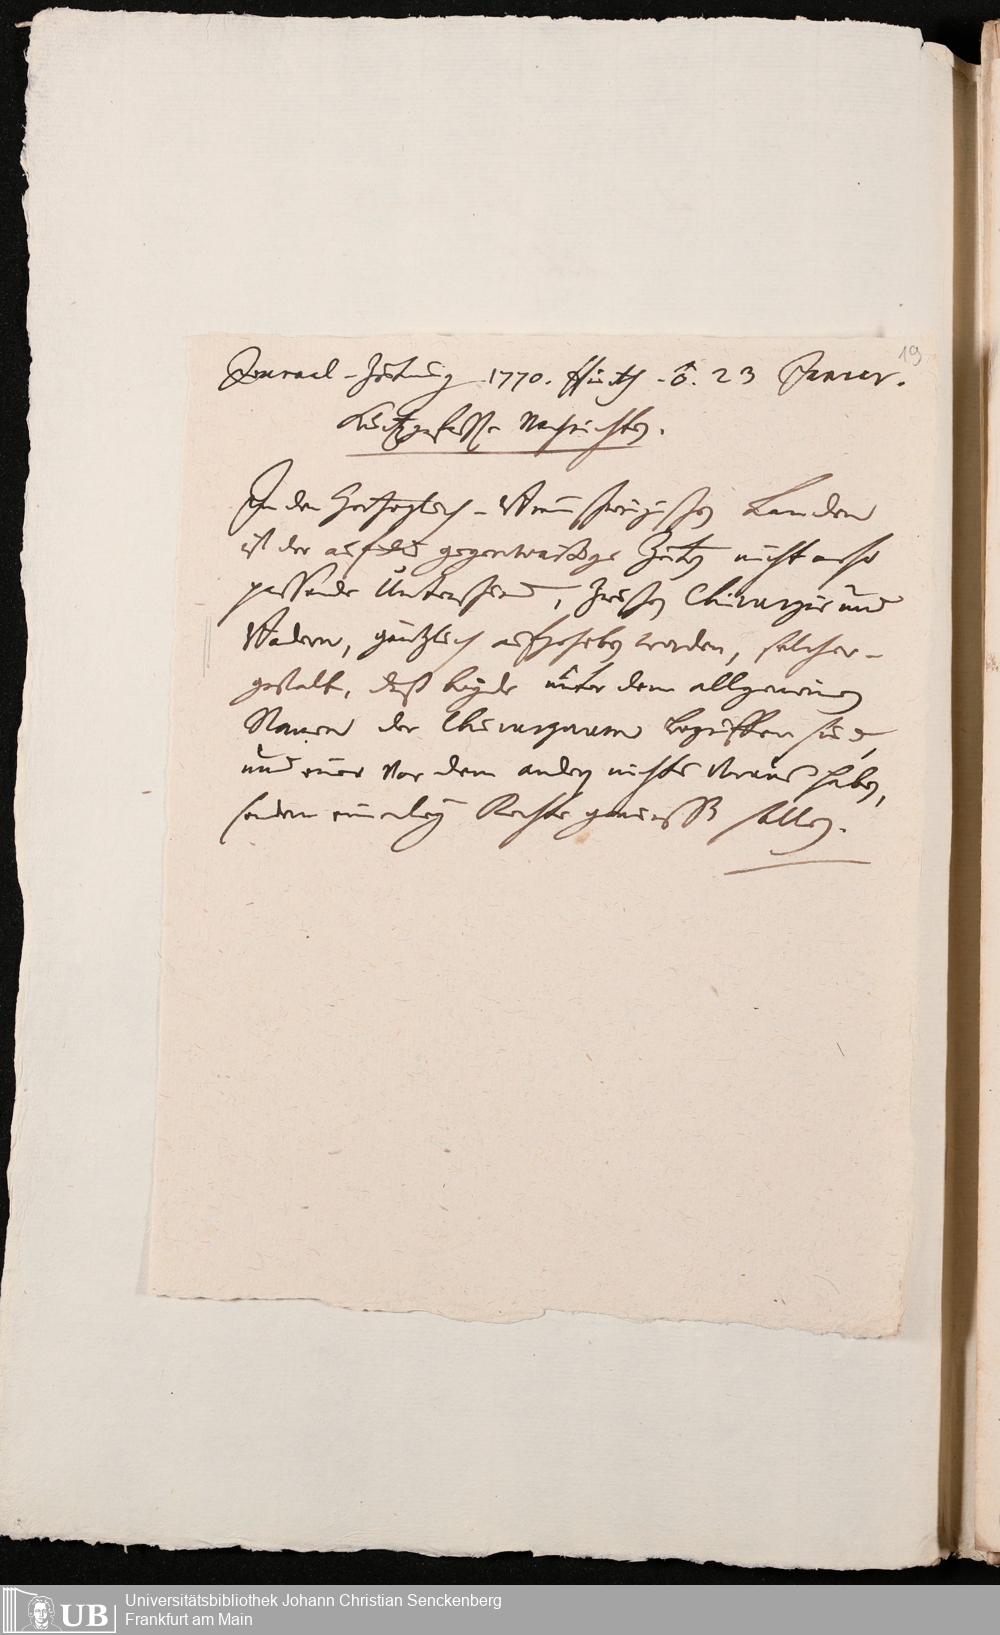 19
Journal-Zeitung 1770. 23 Januar.
Kurtzgefasste Nachrichten.
In den Hertzoglich-Braunschweigischen Landen
ist der auf die gegenwärtige Zeiten nicht mehr
passende Unterschied, zwischen Chirurgis und
Badern, gäntzlich aufgehoben worden, solcher-
gestalt, daß beyde unter dem allgemeinen
Namen der Chirurgorum begriffen sind,
und einer vor dem andern nichts voraus haben,
sondern einerley Rechte geniessen sollen.
UB
Universitätsbibliothek Johann Christian Senckenberg
Frankfurt am Main